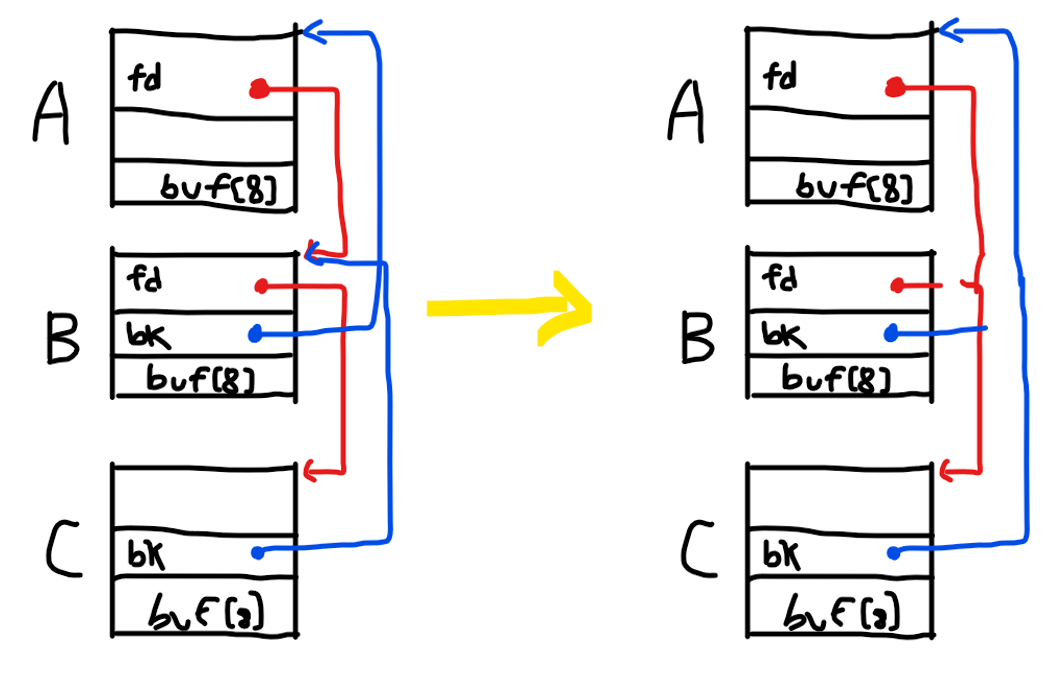 A
fd
buf[8]
B
fd
bk
buf[8]
C
bk
buf[8]
A
fd
buf[8]
B
fd
bk
buf[8]
C
bk
buf[8]